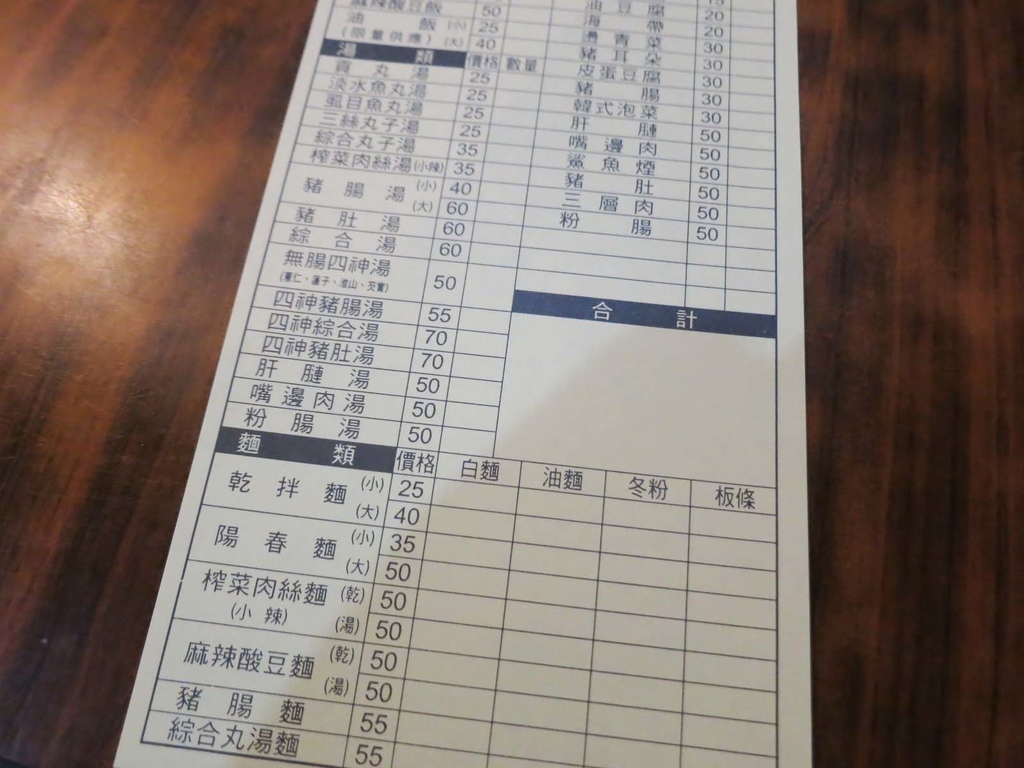 麻辣酸豆飯 50
油飯 (小) 25
(限量供應) (大) 40
湯類 價格 數量
貢丸湯 25
淡水魚丸湯 25
虱目魚丸湯 25
三絲丸子湯 25
綜合丸子湯 35
榨菜肉絲湯(小辣) 35
豬腸湯 (小) 40
(大) 60
豬肚湯 60
綜合湯 60
無腸四神湯 50
(薏仁、蓮子、淮山、芡實)
四神豬腸湯 55
四神綜合湯 70
四神豬肚湯 70
肝腱湯 50
嘴邊肉湯 50
粉腸湯 50
15
油豆腐 20
海帶 20
燙青菜 30
豬耳朵 30
皮蛋豆腐 30
豬腸 30
韓式泡菜 30
肝腱 50
嘴邊肉 50
鯊魚煙 50
豬肚 50
三層肉 50
粉腸 50
合計
麵類 價格 白麵 油麵 冬粉 板條
乾拌麵 (小) 25
(大) 40
陽春麵 (小) 35
(大) 50
榨菜肉絲麵 (乾) 50
(小辣) (湯) 50
麻辣酸豆麵 (乾) 50
(湯) 50
豬腸麵 55
綜合丸湯麵 55